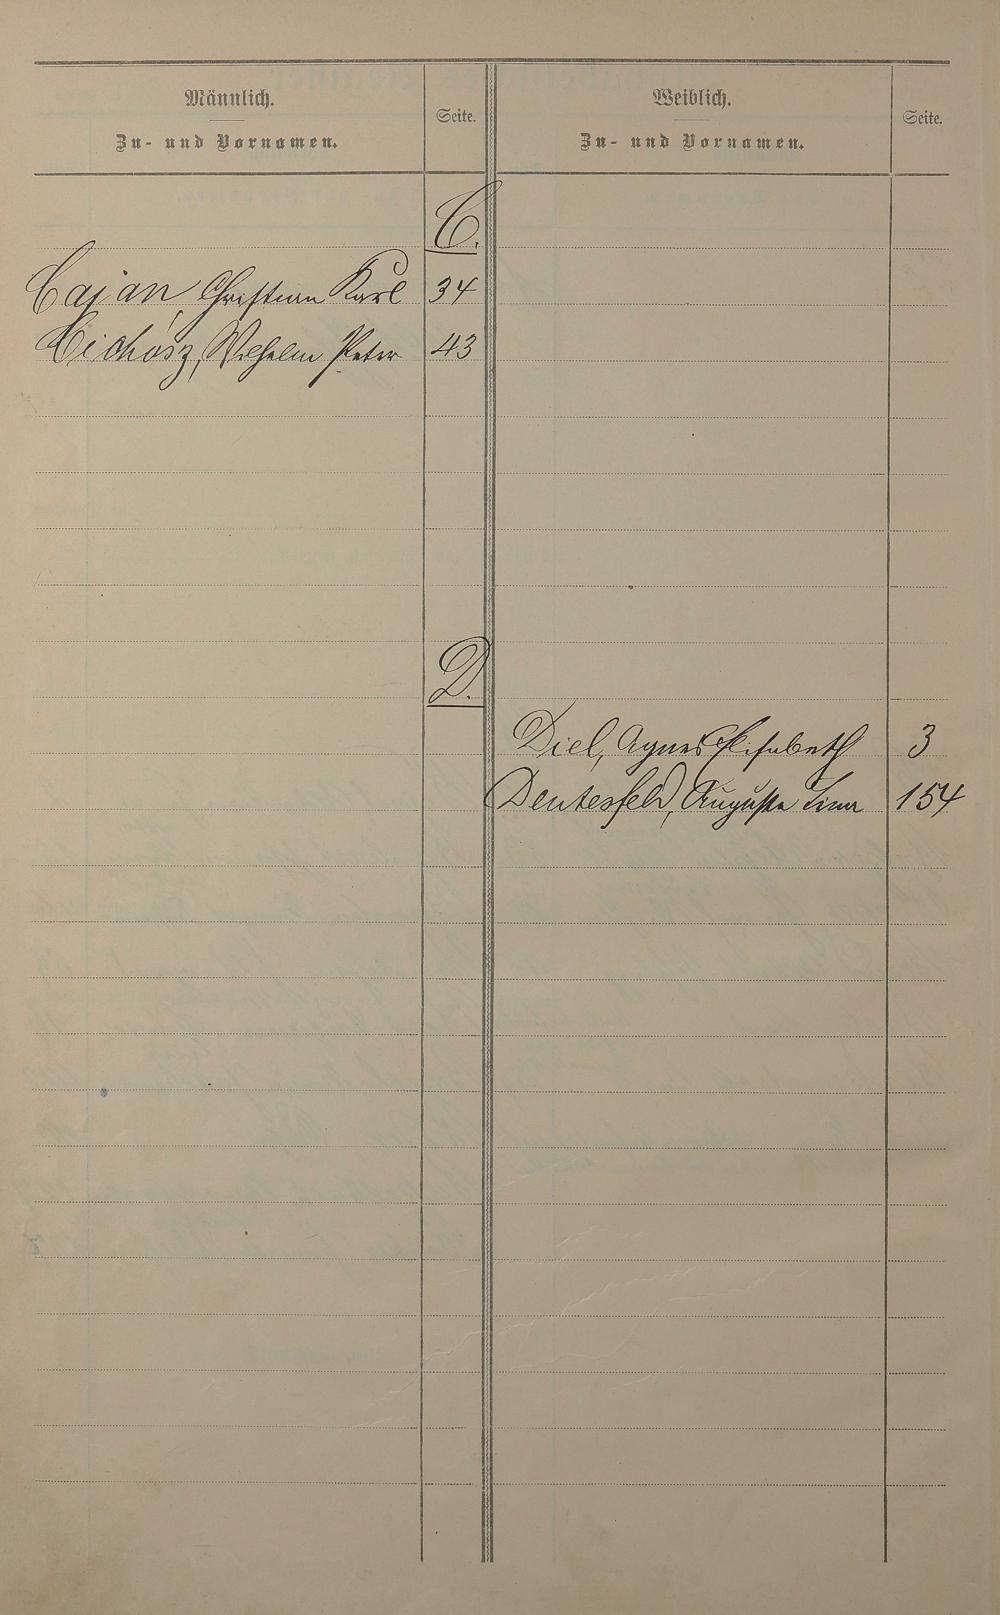 Männlich.
Zu- und Vornamen.
Seite.
Weiblich.
Zu- und Vornamen.
Seite.
C.
Cajan, Christian Karl 34
Cichosz, Wilhelm Peter 43
D.
Diel, Agnes Elisabeth 3
Deutesfeld, Auguste Lina 154